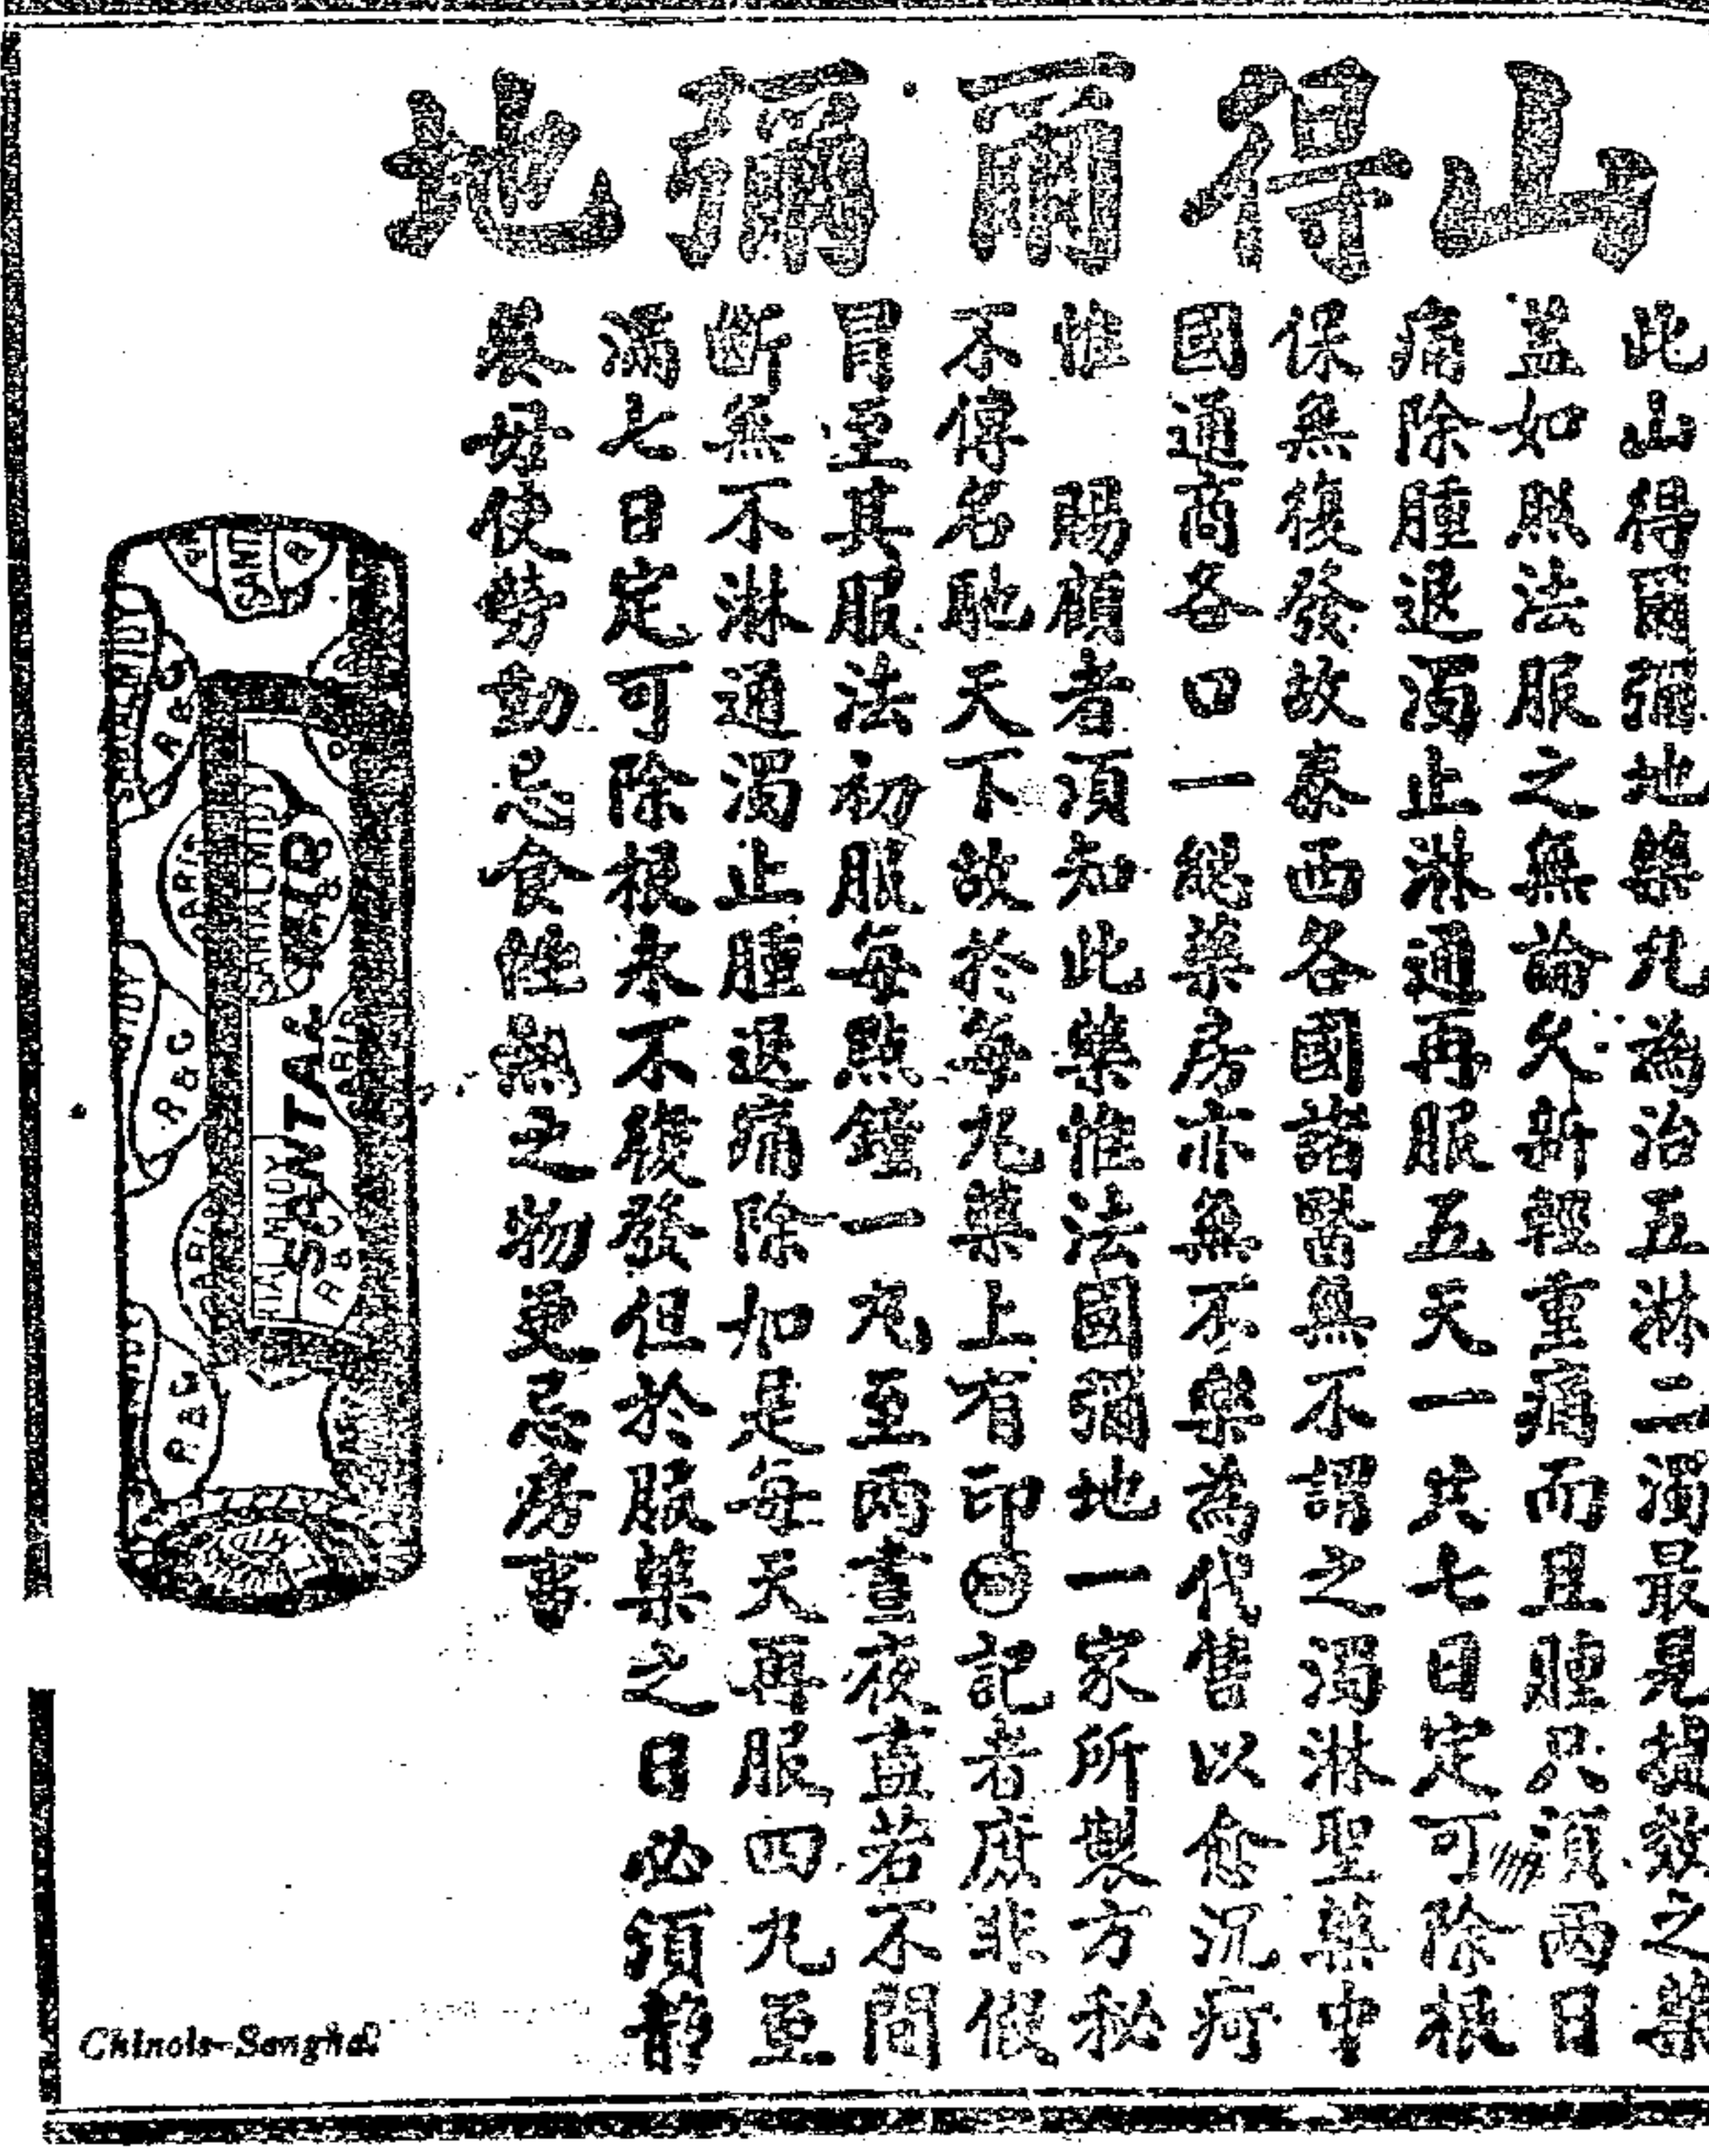 山得爾彌地
此山得爾彌地藥丸為治五淋二濁最見捷效之藥
蓋如照法服之無論久新輕重痛而且腫只須兩日
痛除腫退濁止淋通再服五天一共七日定可除根
保無復發故泰西各國諸醫無不謂之濁淋聖藥中
國通商各口一總藥房亦無不樂為代售以愈沉疴
惟 賜顧者須知此藥惟法國彌地一家所製方秘
不傳名馳天下故於每丸藥上有印 記者庶非假
冒至其服法初服每點鐘一丸至兩晝夜盡若不間
斷無不淋通濁止腫退痛除如是每天再服四丸至
滿七日定可除根永不復發但於服藥之日必須靜
養毋使勞動忌食性熱之物更忌房事
SANTAL
R&C
R&C
R&C
R&C
Chinois-Sanghaï